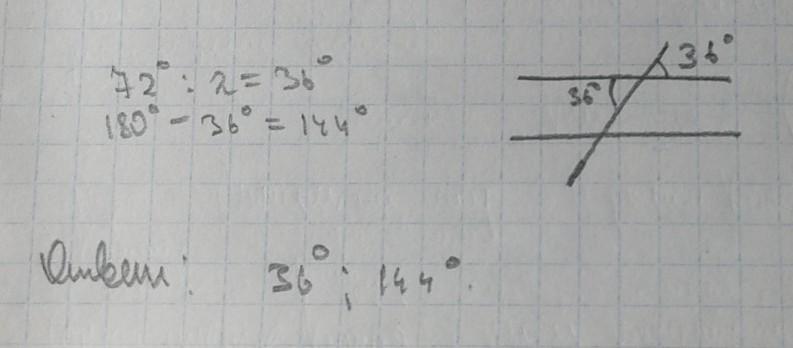 72° : 2 = 36°
180° - 36° = 144°
36°
36°
Ответ: 36°; 144°.